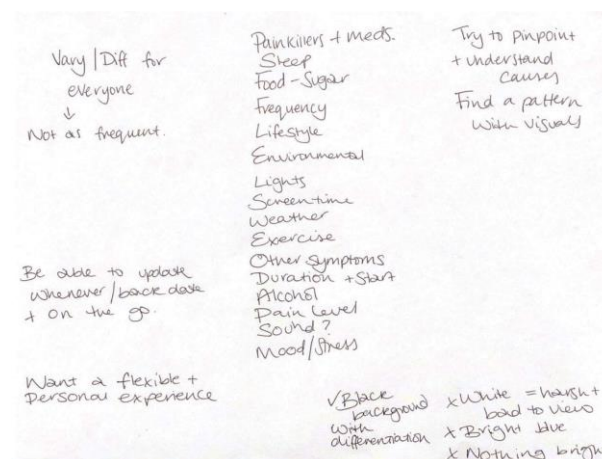 Vary / Diff for
everyone
↓
Not as frequent.
Be able to update
whenever / back date
+ on the go.
Want a flexible +
personal experience
Painkillers + meds.
Sleep
Food - Sugar
Frequency
Lifestyle
Environmental
Lights
Screentime
Weather
Exercise
Other symptoms
Duration + Start
Alcohol
Pain Level
Sound?
Mood/Stress
Try to pinpoint
+ understand
causes
Find a pattern
with visuals
✓ Black
background
with
differentiation
x White = harsh +
bad to view
x Bright blue
x Nothing brigh